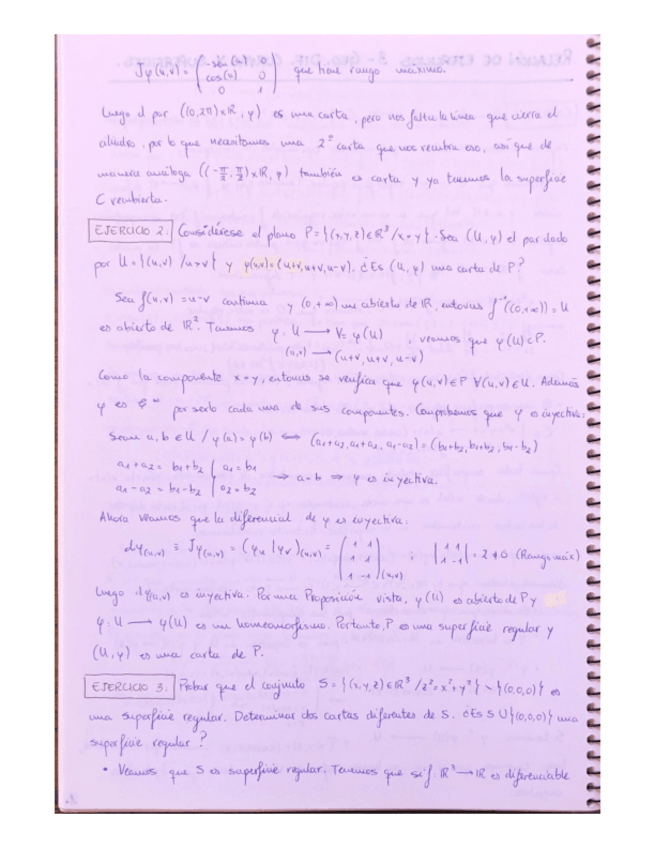 Jφ(u,v) = ( -sen(u) 0 / cos(u) 0 / 0 1 ) que tiene rango máximo.
Luego el par ((0,2π)×ℝ, φ) es una carta, pero nos falta la línea que cierra el
cilindro, por lo que necesitamos una 2ª carta que nos recubra eso, así que de
manera análoga ((-π/2, π/2)×ℝ, φ) también es carta y ya tenemos la superficie
C recubierta.
EJERCICIO 2. Considérese el plano P={(x,y,z)∈ℝ³/x=y}. Sea (U,φ) el par dado
por U={(u,v)/u>v} y φ(u,v)=(u+v,u+v,u-v). ¿Es (U,φ) una carta de P?
Sea f(u,v)=u-v continua y (0,+∞) un abierto de ℝ, entonces f⁻¹((0,+∞))=U
es abierto de ℝ². Tenemos φ: U → V=φ(U) , veamos que φ(U)⊂P.
(u,v) → (u+v,u+v,u-v)
Como la componente x=y, entonces se verifica que φ(u,v)∈P ∀(u,v)∈U. Además
φ es 𝒞^∞ por serlo cada una de sus componentes. Comprobemos que φ es inyectiva:
Sean a,b∈U / φ(a)=φ(b) ⟺ (a₁+a₂,a₁+a₂,a₁-a₂)=(b₁+b₂,b₁+b₂,b₁-b₂)
a₁+a₂=b₁+b₂ | a₁=b₁
⇒ a=b ⇒ φ es inyectiva.
a₁-a₂=b₁-b₂ | a₂=b₂
Ahora veamos que la diferencial de φ es inyectiva:
dφ(u,v) ≡ Jφ(u,v) = (φu | φv)(u,v) = ( 1 1 / 1 1 / 1 -1 )(u,v) ; | 1 1 / 1 -1 | = 2 ≠ 0 (Rango máx)
Luego dφ(u,v) es inyectiva. Por una Proposición vista, φ(U) es abierto de P y
φ: U → φ(U) es un homeomorfismo. Por tanto, P es una superficie regular y
(U,φ) es una carta de P.
EJERCICIO 3. Probar que el conjunto S={(x,y,z)∈ℝ³/z²=x²+y²}∖{(0,0,0)} es
una superficie regular. Determinar dos cartas diferentes de S. ¿Es S∪{(0,0,0)} una
superficie regular?
• Veamos que S es superficie regular. Tenemos que si f: ℝ³ → ℝ es diferenciable